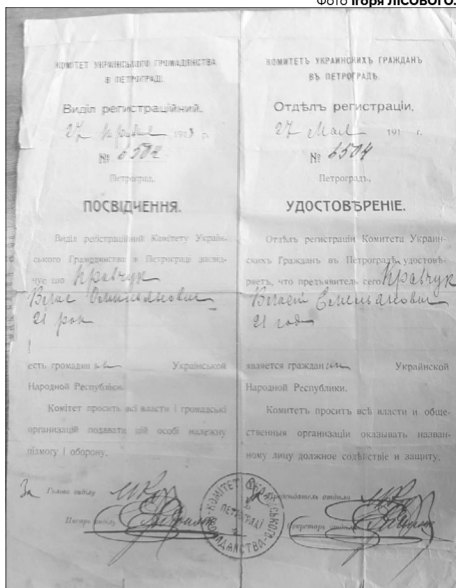 Фото Ігоря ЛІСОВОГО.
КОМІТЕТ УКРАЇНСЬКОГО ГРОМАДЯНСТВА
В ПЕТРОГРАДІ.
Виділ регистраційний.
27 1918 р.
№ 6504
Петроград.
ПОСВІДЧЕННЯ.
Виділ регістраційний Комітету Україн-
ського Громадянства в Петрограді посвід-
чує що Кравчук
Влас Омелянович
21 рок
есть громадян Української
Народної Республіки.
Комітет просить всі власти і громадські
організації подавати цій особі належну
підмогу і оборону.
За Голова виділу
Писарь виділу
КОМИТЕТЪ УКРАИНСКИХЪ ГРАЖДАНЪ
ВЪ ПЕТРОГРАДѢ.
Отдѣлъ регистраціи.
27 Мая 191 г.
№ 6504
Петроградъ.
УДОСТОВѢРЕНІЕ.
Отдѣлъ регистраціи Комитета Украин-
скихъ Гражданъ въ Петроградѣ удостовѣ-
ряетъ, что предъявитель сего Кравчук
Власій Емельянович
21 год
является граждан Украинской
Народной Республики.
Комитетъ проситъ всѣ власти и обще-
ственныя организаціи оказывать назван-
ному лицу должное содѣйствіе и защиту.
Предсѣдатель отдѣла
Секретарь отдѣла
КОМІТЕТ УКРАЇНСЬКОГО ГРОМАДЯНСТВА
В ПЕТРОГРАДІ